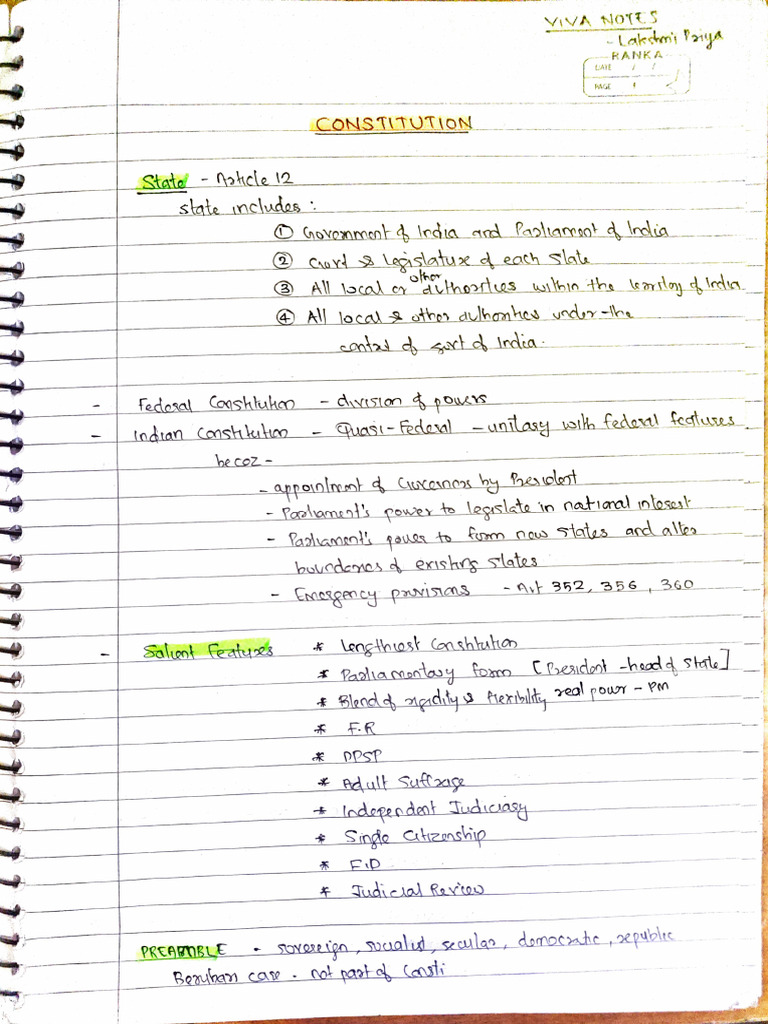 VIVA NOTES
- Lakshmi Priya
RANKA
DATE / /
PAGE
CONSTITUTION
State - Article 12
state includes :
① Government of India and Parliament of India
② Govt & legislature of each state
③ All local or other authorities within the territory of India
④ All local & other authorities under the
control of govt of India.
- Federal Constitution - division of powers
- Indian Constitution - Quasi-Federal - unitary with federal features
becoz -
- appointment of Governors by President
- Parliament's power to legislate in national interest
- Parliament's power to form new states and alter
boundaries of existing states
- Emergency provisions - Art 352, 356, 360
- Salient Features * Lengthiest Constitution
* Parliamentary form [President - head of state]
* Blend of rigidity & flexibility real power - PM
* F.R
* DPSP
* Adult Suffrage
* Independent Judiciary
* Single Citizenship
* F.D
* Judicial Review
PREAMBLE - sovereign, socialist, secular, democratic, republic
Beruban case - not part of Consti